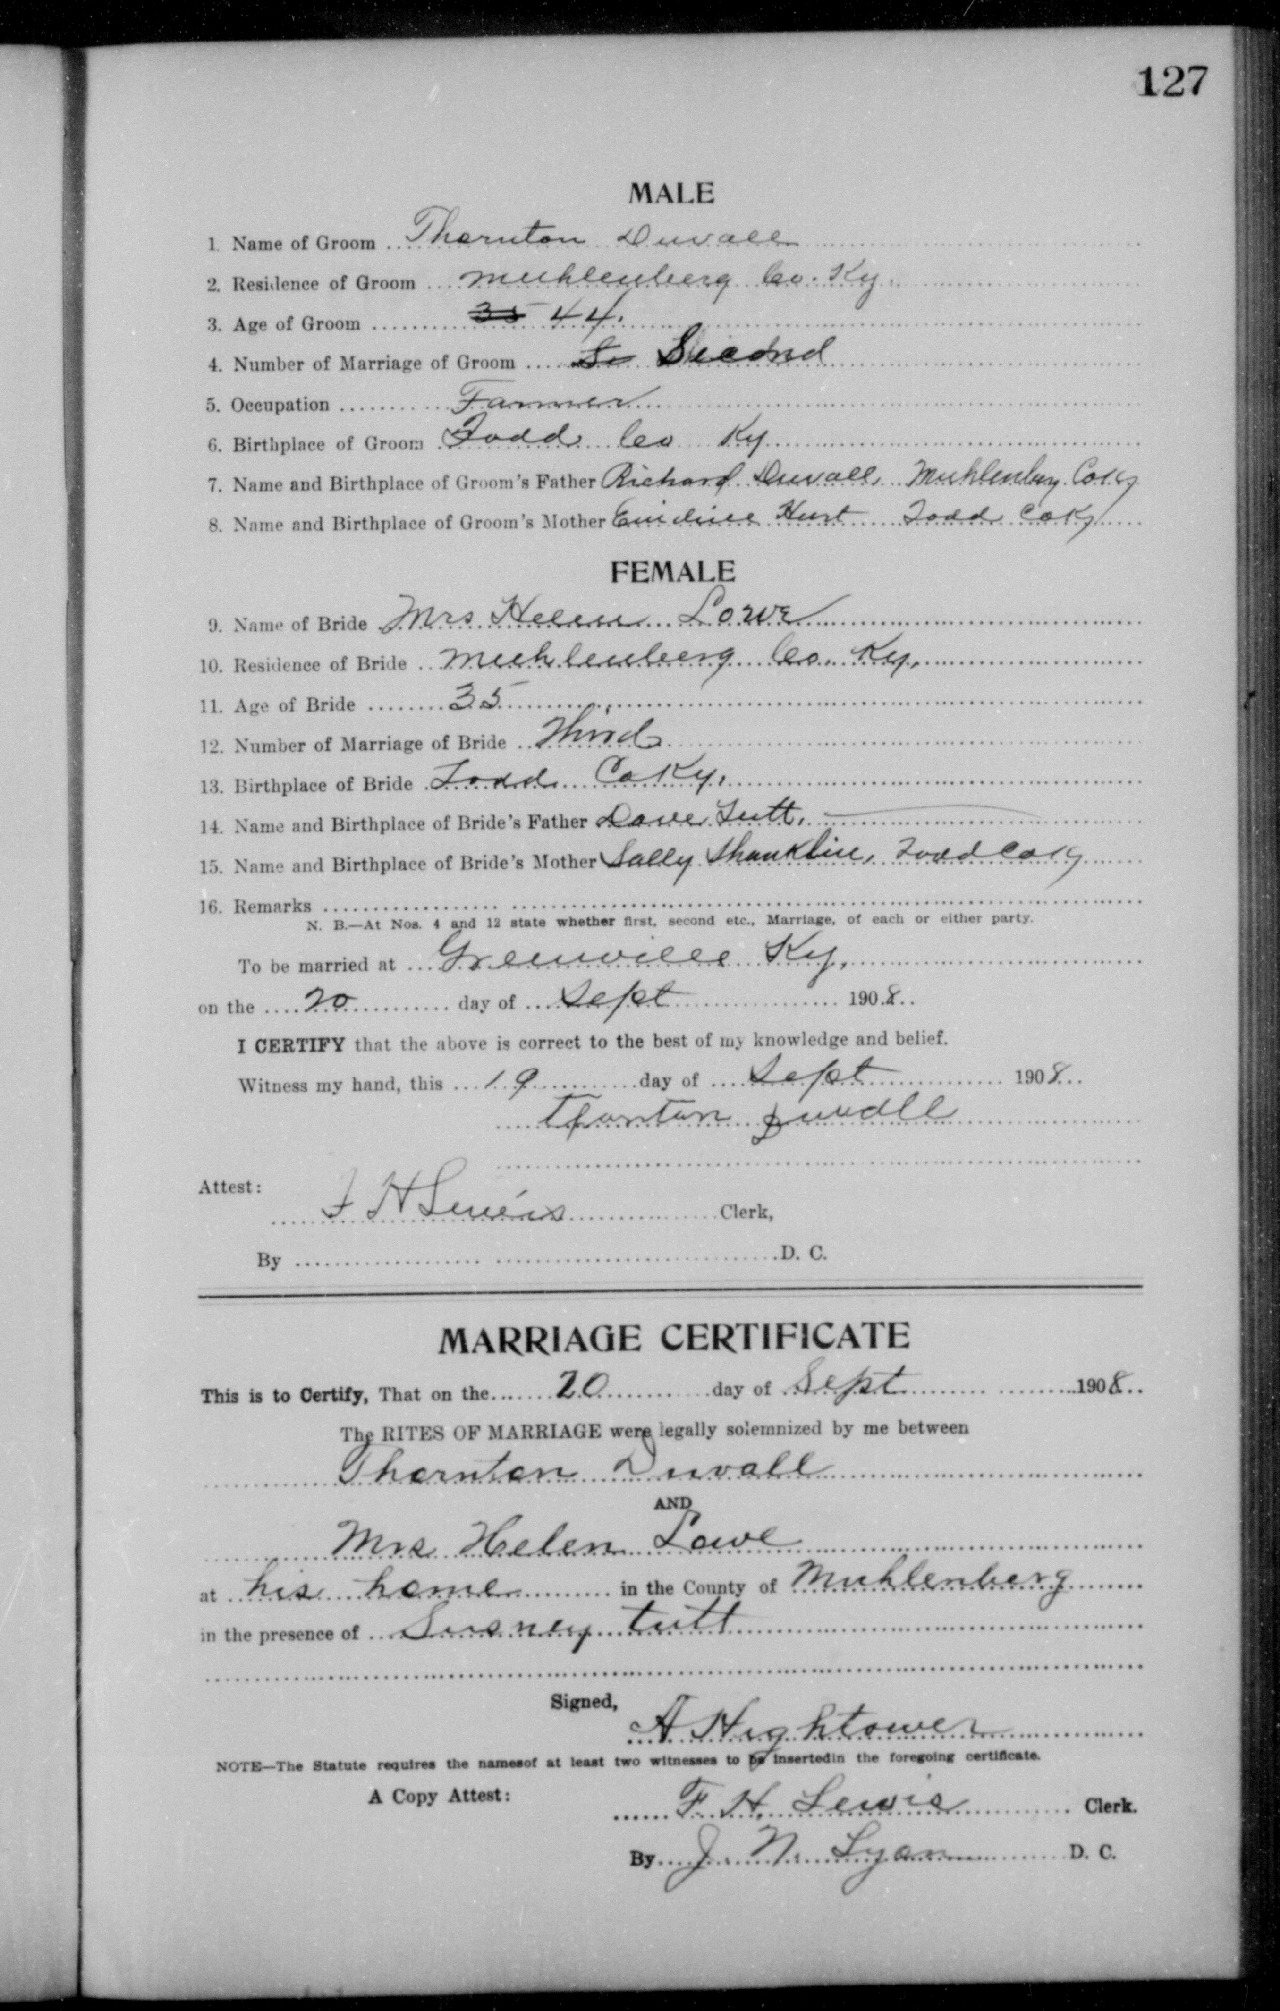 127
MALE
1. Name of Groom Thornton Duvall
2. Residence of Groom Muhlenberg Co. Ky.
3. Age of Groom 35 44.
4. Number of Marriage of Groom Se Second
5. Occupation Farmer
6. Birthplace of Groom Todd Co Ky
7. Name and Birthplace of Groom's Father Richard Duvall, Muhlenberg Co Ky
8. Name and Birthplace of Groom's Mother Hurt Todd Co Ky
FEMALE
9. Name of Bride Mrs Helen Lowe
10. Residence of Bride Muhlenberg Co. Ky.
11. Age of Bride 35
12. Number of Marriage of Bride Third
13. Birthplace of Bride Todd Co Ky.
14. Name and Birthplace of Bride's Father Dave Tutt.
15. Name and Birthplace of Bride's Mother Sally Shanklin, Todd Co Ky
16. Remarks
N. B.—At Nos. 4 and 12 state whether first, second etc., Marriage, of each or either party.
To be married at Greenville Ky.
on the 20 day of Sept 1908
I CERTIFY that the above is correct to the best of my knowledge and belief.
Witness my hand, this 19 day of Sept 1908
Thornton Duvall
Attest:
F H Lewis Clerk,
By D. C.
MARRIAGE CERTIFICATE
This is to Certify, That on the 20 day of Sept 1908
The RITES OF MARRIAGE were legally solemnized by me between
Thornton Duvall
AND
Mrs Helen Lowe
at his home in the County of Muhlenberg
in the presence of Susney tutt
Signed,
A Hightower
NOTE—The Statute requires the namesof at least two witnesses to be insertedin the foregoing certificate.
A Copy Attest:
F. H. Lewis Clerk.
By J. N. Lyon D. C.